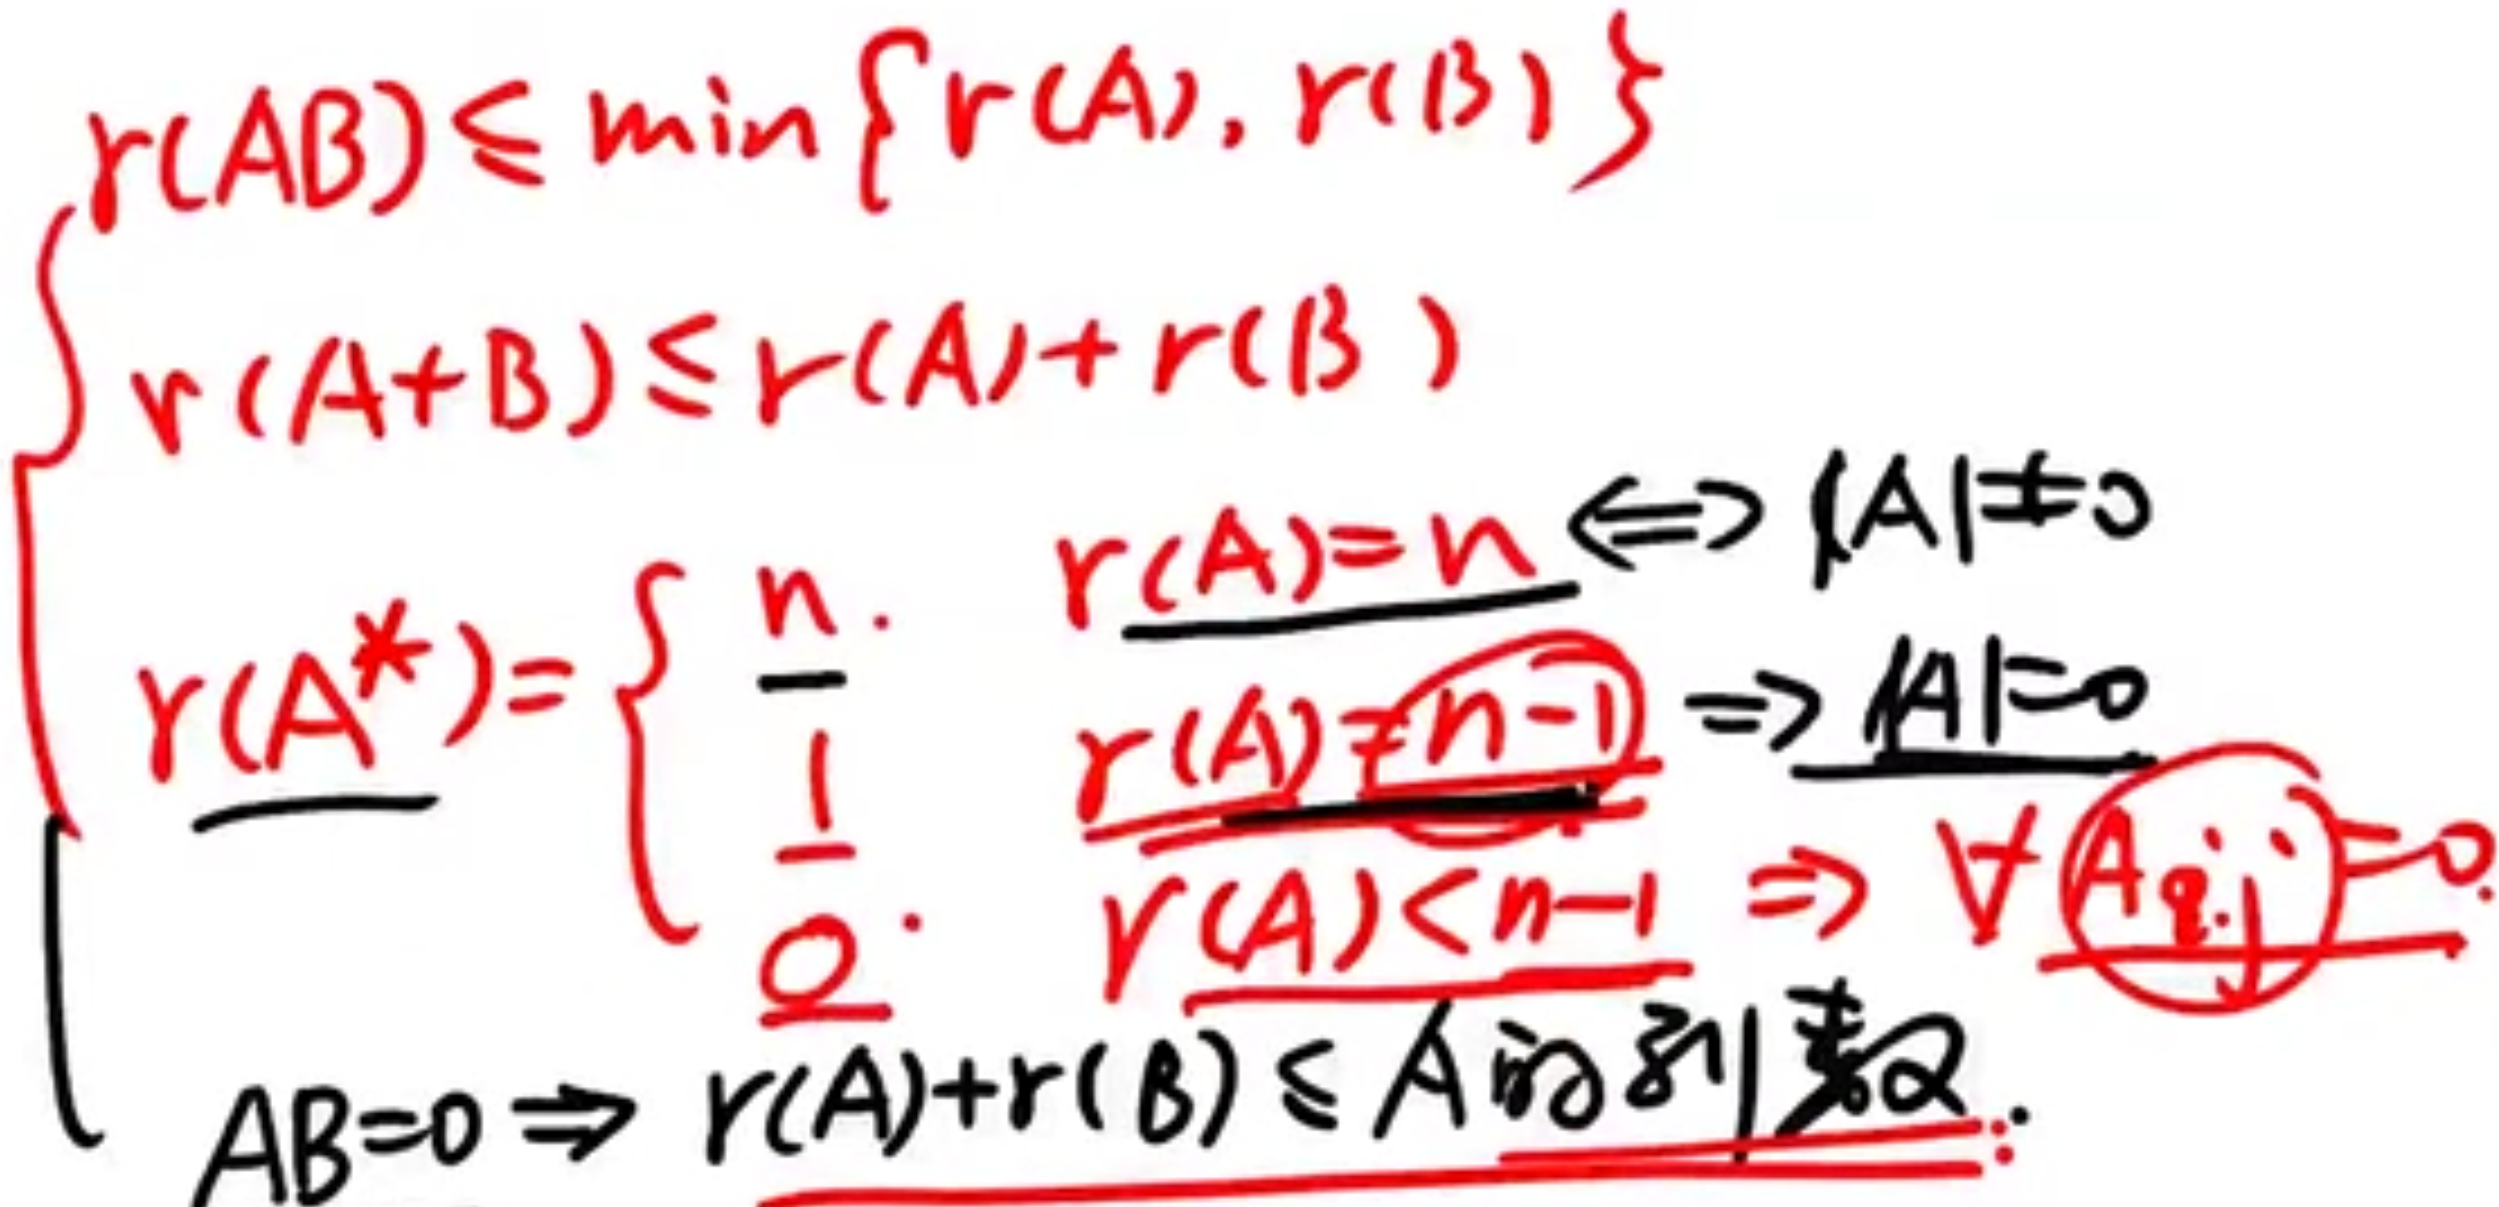 r(AB)≤min{r(A),r(B)}
r(A+B)≤r(A)+r(B)
r(A*)={
n. r(A)=n ⇔ |A|≠0
1 r(A)=n-1 ⇒ |A|=0
0. r(A)<n-1 ⇒ ∀Aij=0.
AB=0 ⇒ r(A)+r(B)≤A的列数.